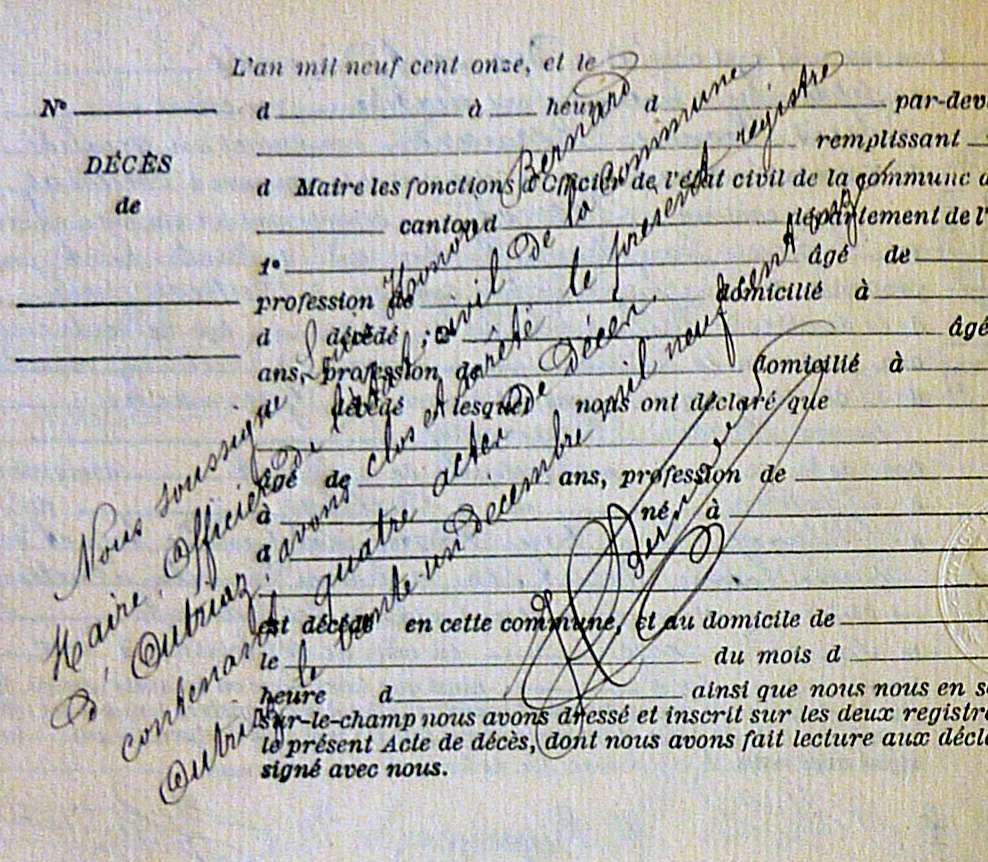 L'an mil neuf cent onze, et le
N° d à heure d par-dev
remplissant
DÉCÈS
de
d Maire les fonctions d'Officier de l'état civil de la commune d
canton d département de l'
1° âgé de
profession de domicilié à
d décédé ; 2° âgé
ans, profession de domicilié à
d décédé lesquels nous ont déclaré que
âgé de ans, profession de
à né à
d
est décédé en cette commune, et au domicile de
le du mois d
heure d ainsi que nous nous en s
sur-le-champ nous avons dressé et inscrit sur les deux registre
le présent Acte de décès, dont nous avons fait lecture aux décla
signé avec nous.
Nous soussigné Louis Honoré Bernard
Maire, Officier de l'état civil de la commune
d'Outriaz, avons clos et arrêté le présent registre
contenant quatre actes de Décès.
Outriaz le trente-un décembre mil neuf cent onze